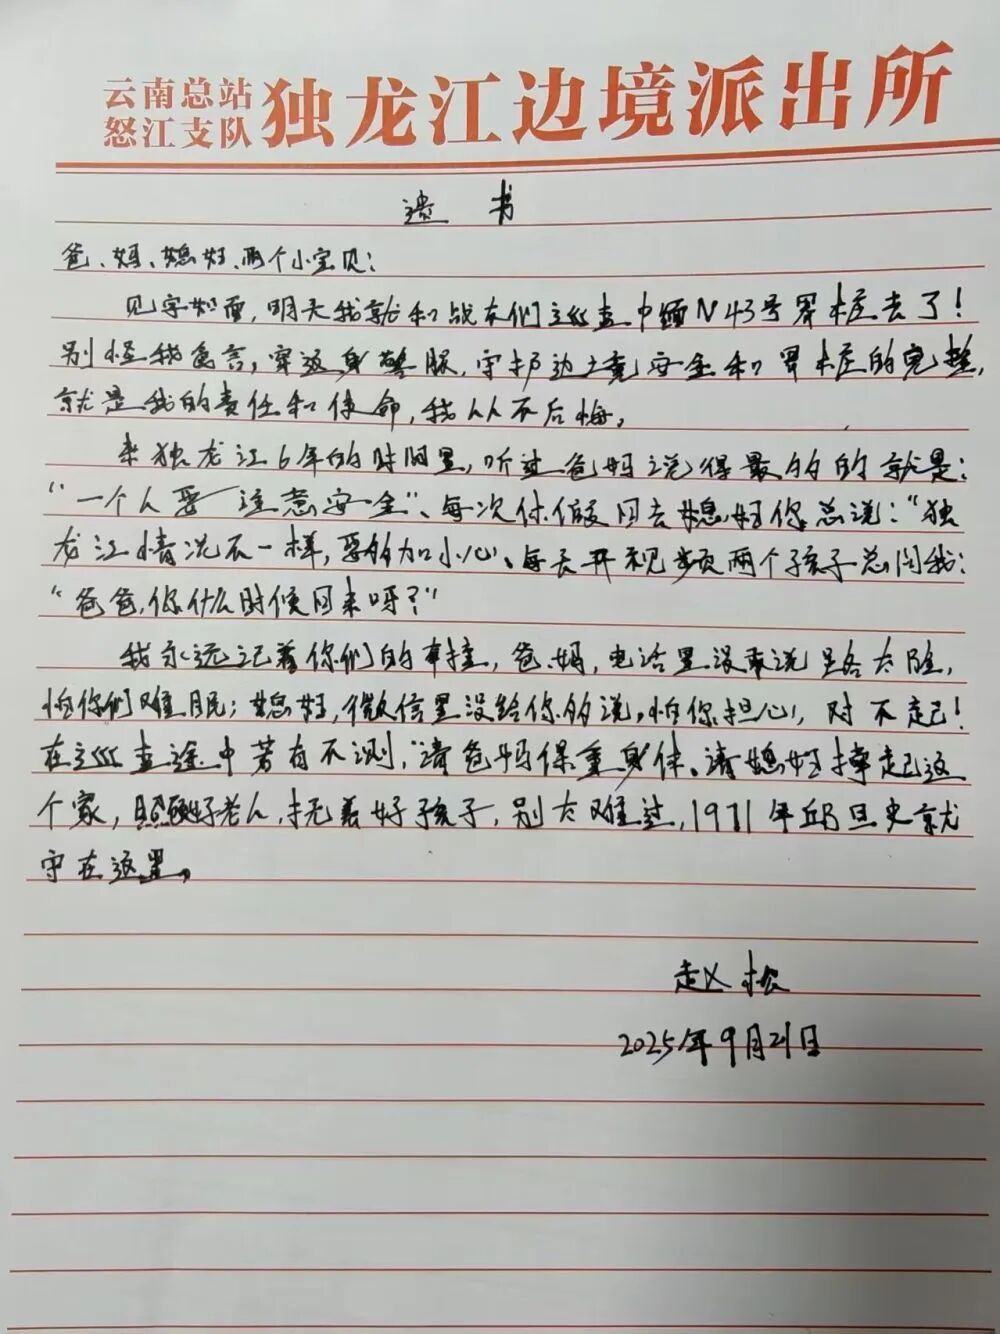 云南总站
怒江支队
独龙江边境派出所
遗 书
爸、妈、媳妇、两个小宝贝：
见字如面，明天我就和战友们巡查中缅N43号界桩去了！
别怪我食言，穿这身警服，守护边境安全和界桩的完整，
就是我的责任和使命，我从不后悔。
来独龙江6年的时间里，听过爸妈说得最多的就是：
“一个人要注意安全”、每次休假回去媳妇你总说：“独
龙江情况不一样，要多加小心、每天开视频两个孩子总问我：
“爸爸，你什么时候回来呀？”
我永远记着你们的牵挂，爸、妈，电话里没敢说路太险，
怕你们难眠；媳妇，微信里没给你多说，怕你担心，对不起！
在巡查途中若有不测，请爸妈保重身体、请媳妇撑起这
个家，照顾好老人，抚养好孩子，别太难过，1971年邱旦史就
守在这里。
赵松
2025年9月21日